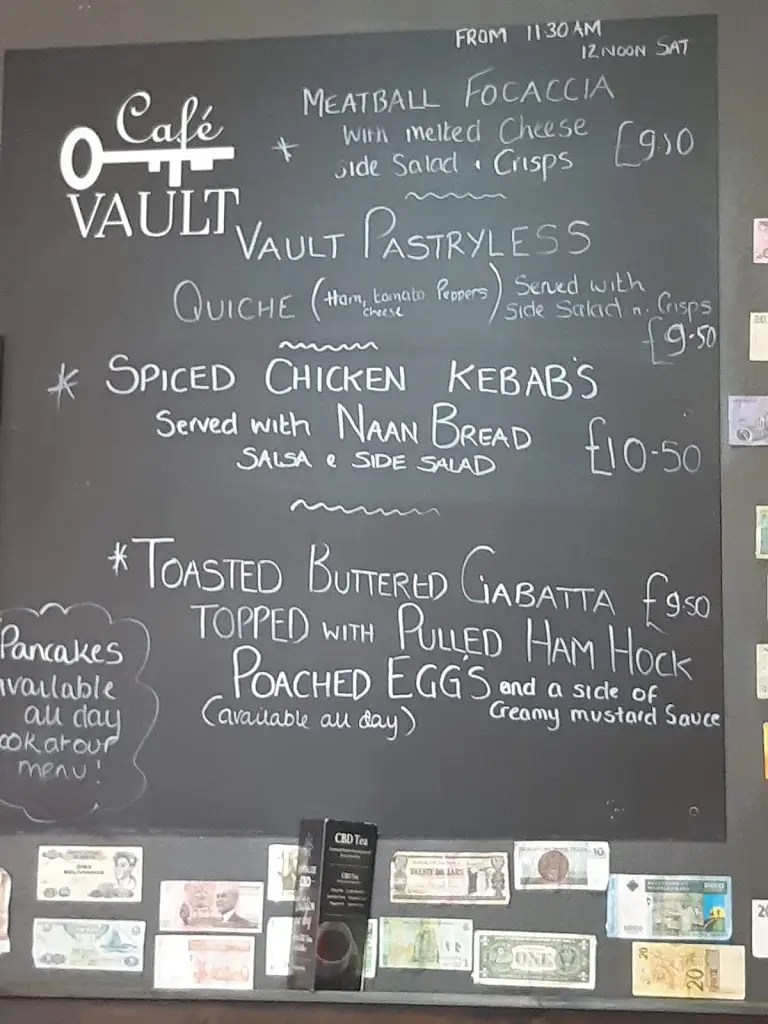 FROM 11.30 AM
12 NOON SAT
Café
VAULT
MEATBALL FOCACCIA
* With melted Cheese
Side Salad & Crisps £9.50
VAULT PASTRYLESS
QUICHE (Ham, tomato Peppers cheese) Served with
Side Salad n. Crisps
£9.50
* SPICED CHICKEN KEBAB'S
Served with NAAN BREAD
SALSA & SIDE SALAD £10-50
* TOASTED BUTTERED CIABATTA £9.50
TOPPED WITH PULLED HAM HOCK
POACHED EGG'S and a side of
(available all day) Creamy mustard Sauce
Pancakes
available
all day
ook at our
menu!
CBD Tea
CBD Tea
10
10000
10000
ONE
20
20